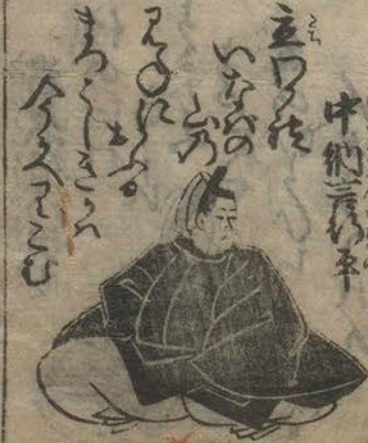 中納言行平
立わかれ
いなばの
山乃
みねにおふる
まつとしきかば
今かへりこむ